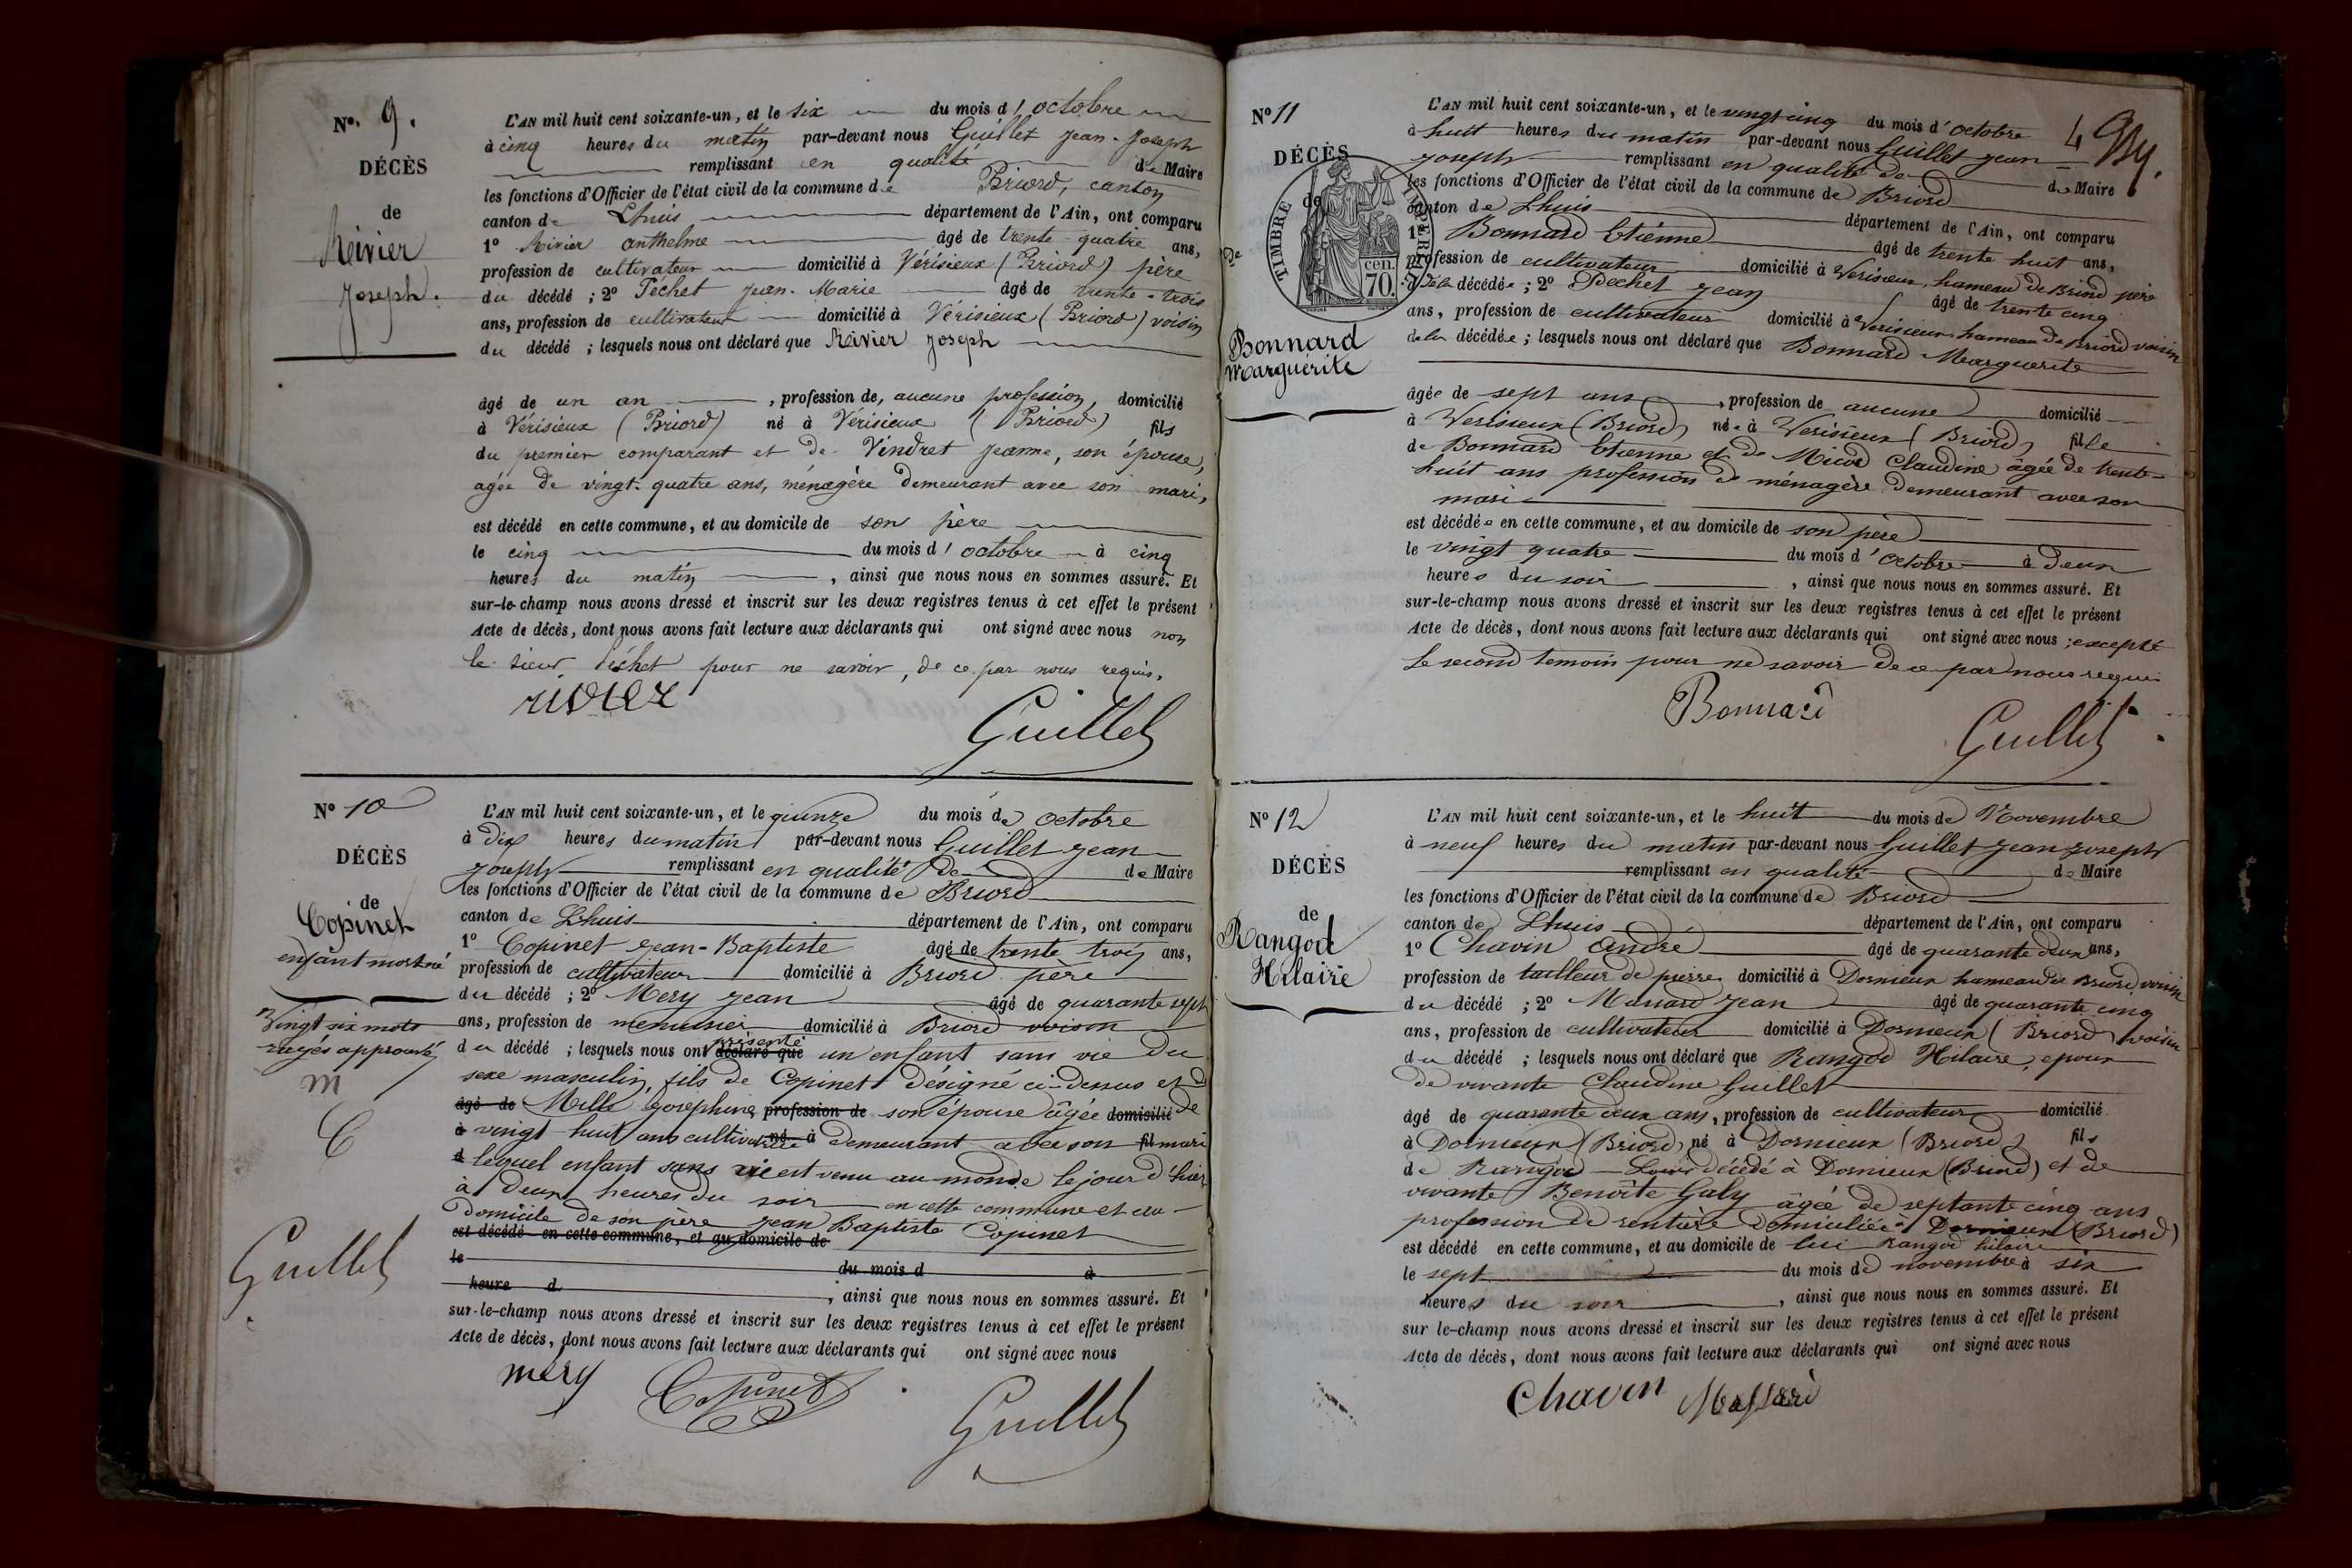 N°. 9.
DÉCÈS
de
Rivier
Joseph.
L'AN mil huit cent soixante-un, et le six du mois d' octobre
à cinq heures du matin par-devant nous Guillet Jean-Joseph
remplissant en qualité de Maire
les fonctions d'Officier de l'état civil de la commune de Briord, canton
canton de Lhuis département de l'Ain, ont comparu
1° Rivier anthelme âgé de trente-quatre ans,
profession de cultivateur domicilié à Vérisieux (Briord) père
du décédé ; 2° Péchet Jean-Marie âgé de trente-trois
ans, profession de cultivateur domicilié à Vérisieux (Briord) voisin
du décédé ; lesquels nous ont déclaré que Rivier Joseph
âgé de un an , profession de, aucune profession, domicilié
à Vérisieux (Briord) né à Vérisieux (Briord) fils
du premier comparant et de Vindret Jeanne, son épouse,
agée de vingt-quatre ans, ménagère demeurant avec son mari,
est décédé en cette commune, et au domicile de son père
le cinq du mois d' octobre à cinq
heures du matin , ainsi que nous nous en sommes assuré. Et
sur-le-champ nous avons dressé et inscrit sur les deux registres tenus à cet effet le présent
Acte de décès, dont nous avons fait lecture aux déclarants qui ont signé avec nous non
le sieur Péchet pour ne savoir, de ce par nous requis.
rivier
Guillet
N° 10
DÉCÈS
de
Copinet
enfant mort né
Vingt six mots
rayés approuvés
m
C
Guillet
L'AN mil huit cent soixante-un, et le quinze du mois de octobre
à dix heures du matin par-devant nous Guillet Jean
Joseph remplissant en qualité de de Maire
les fonctions d'Officier de l'état civil de la commune de Briord
canton de Lhuis département de l'Ain, ont comparu
1° Copinet Jean-Baptiste âgé de trente trois ans,
profession de cultivateur domicilié à Briord père
du décédé ; 2° Mery Jean âgé de quarante sept
ans, profession de menuisier domicilié à Briord voisin
présenté
du décédé ; lesquels nous ont déclaré que un enfant sans vie du
sexe masculin, fils de Copinet désigné ci-dessus et d
âgé de Mille Josephine profession de son épouse âgée domicilié de
à vingt huit ans cultivatrice né à demeurant avec son fil mari
d lequel enfant sans vie est venu au monde le jour d'hier
à deux heures du soir en cette commune et au
domicile de son père Jean Baptiste Copinet
est décédé en cette commune, et au domicile de
le du mois d à
heure d , ainsi que nous nous en sommes assuré. Et
sur-le-champ nous avons dressé et inscrit sur les deux registres tenus à cet effet le présent
Acte de décès, dont nous avons fait lecture aux déclarants qui ont signé avec nous
mery Copinet
Guillet
N° 11
DÉCÈS
de
TIMBRE IMPERIAL
cen.
70.
De
Bonnard
Marguérite
L'AN mil huit cent soixante-un, et le vingt cinq du mois d' octobre
à huit heures du matin par-devant nous Guillet Jean
Joseph remplissant en qualité de de Maire
les fonctions d'Officier de l'état civil de la commune de Briord
canton de Lhuis département de l'Ain, ont comparu
1° Bonnard Etiénne âgé de trente huit ans,
profession de cultivateur domicilié à Verisieux, hameau de Briord père
de la décédée ; 2° Pechet Jean âgé de trente cinq
ans, profession de cultivateur domicilié à Verisieux hameau de Briord voisin
de la décédée ; lesquels nous ont déclaré que Bonnard Marguerite
âgée de sept ans , profession de aucune domicilié
à Verisieux (Briord) née à Verisieux (Briord) fille
de Bonnard Etienne et de Micod Claudine âgée de trente-
huit ans profession de ménagère demeurant avec son
mari
est décédée en cette commune, et au domicile de son père
le vingt quatre du mois d' octobre à deux
heures du soir , ainsi que nous nous en sommes assuré. Et
sur-le-champ nous avons dressé et inscrit sur les deux registres tenus à cet effet le présent
Acte de décès, dont nous avons fait lecture aux déclarants qui ont signé avec nous ; excepté
le second temoin pour ne savoir de ce par nous requis
Bonnard
Guillet
N° 12
DÉCÈS
de
Rangod
Hilaire
L'AN mil huit cent soixante-un, et le huit du mois de Novembre
à neuf heures du matin par-devant nous Guillet Jean Joseph
remplissant en qualité de Maire
les fonctions d'Officier de l'état civil de la commune de Briord
canton de Lhuis département de l'Ain, ont comparu
1° Chavin André âgé de quarante deux ans,
profession de tailleur de pierre domicilié à Dornieux hameau de Briord voisin
du décédé ; 2° Massard Jean âgé de quarante cinq
ans, profession de cultivateur domicilié à Dornieux (Briord) voisin
du décédé ; lesquels nous ont déclaré que Rangod Hilaire, epoux
de vivante Claudine Guillet
âgé de quarante deux ans, profession de cultivateur domicilié
à Dornieux (Briord) né à Dornieux (Briord) fils
de Rangod Louis décédé à Dornieux (Briord) et de
vivante Benoîte Galy âgée de septante cinq ans
profession de rentière domiciliée à Dornieux (Briord)
est décédé en cette commune, et au domicile de lui Rangod hilaire
le sept du mois de novembre à six
heures du soir , ainsi que nous nous en sommes assuré. Et
sur le-champ nous avons dressé et inscrit sur les deux registres tenus à cet effet le présent
Acte de décès, dont nous avons fait lecture aux déclarants qui ont signé avec nous
Chavin Massard